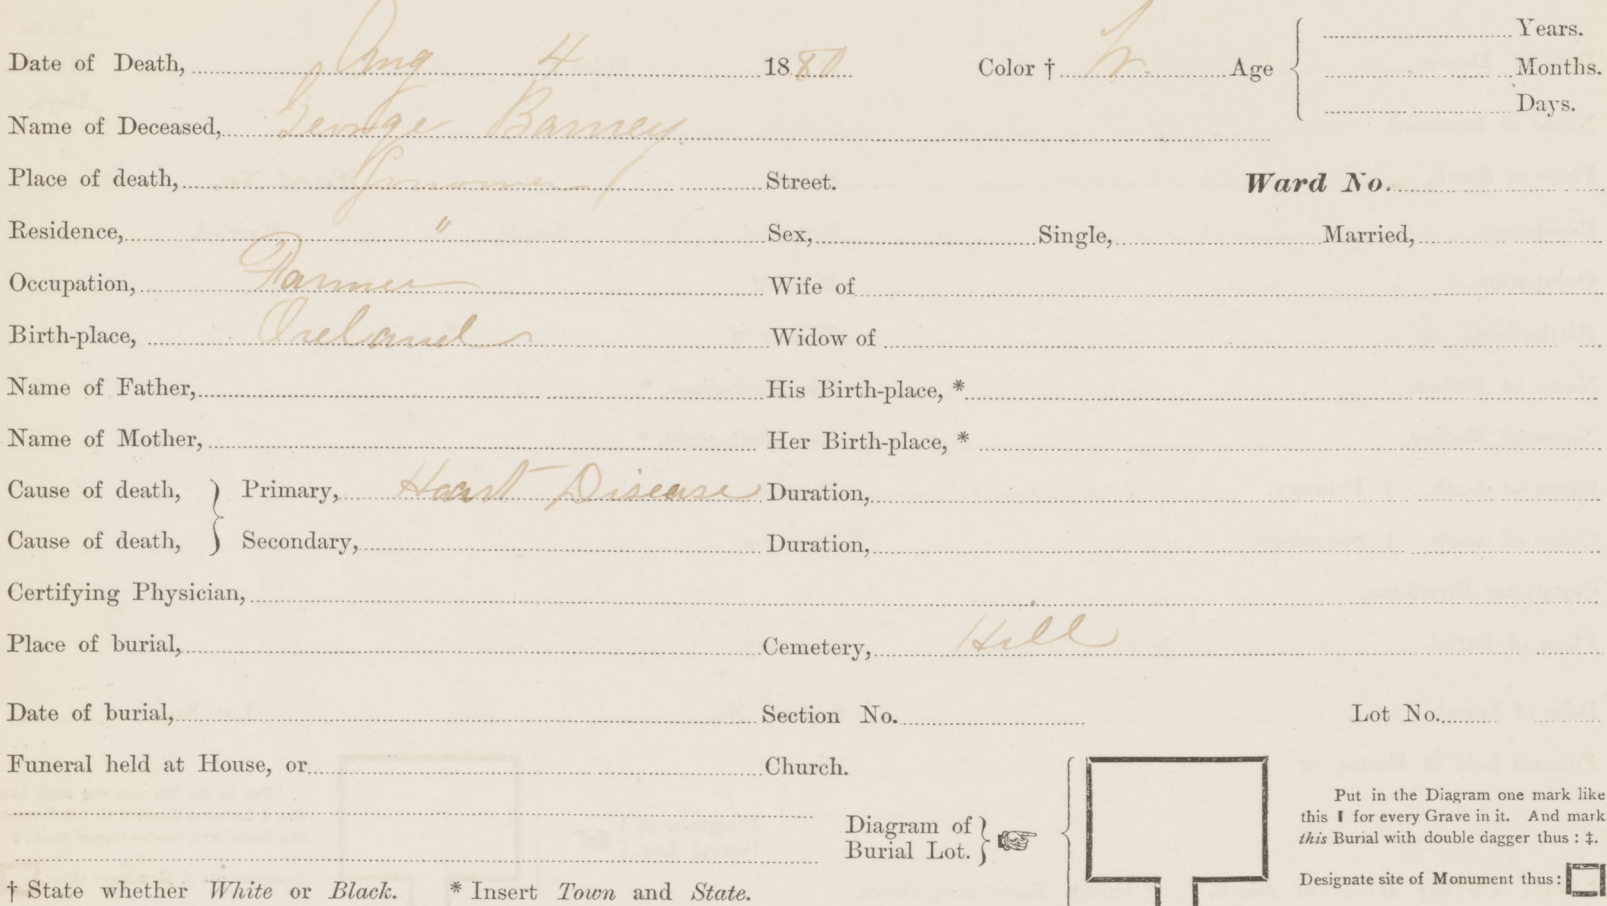 Date of Death, Aug 4 1880 Color † W. Age Years.
Months.
Days.
Name of Deceased, George Barney
Place of death, Street. Ward No.
Residence, " Sex, Single, Married,
Occupation, Farmer Wife of
Birth-place, Ireland Widow of
Name of Father, His Birth-place, *
Name of Mother, Her Birth-place, *
Cause of death, Primary, Heart Disease Duration,
Cause of death, Secondary, Duration,
Certifying Physician,
Place of burial, Cemetery, Hill
Date of burial, Section No. Lot No.
Funeral held at House, or Church.
Diagram of
Burial Lot.
Put in the Diagram one mark like
this ▮ for every Grave in it. And mark
this Burial with double dagger thus : ‡.
Designate site of Monument thus:
† State whether White or Black. * Insert Town and State.